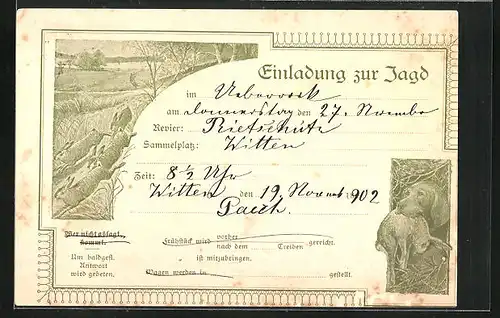 Einladung zur Jagd
im
am Donnerstag den 27. November
Revier: Rietschütz
Sammelplatz: Witten
Zeit: 8 1/2 Uhr
Witten den 19. Novemb 1902
Wer nicht absagt,
kommt.
Um baldgefl.
Antwort
wird gebeten.
Frühstück wird vorher
nach dem Treiben gereicht.
ist mitzubringen.
Wagen werden in gestellt.